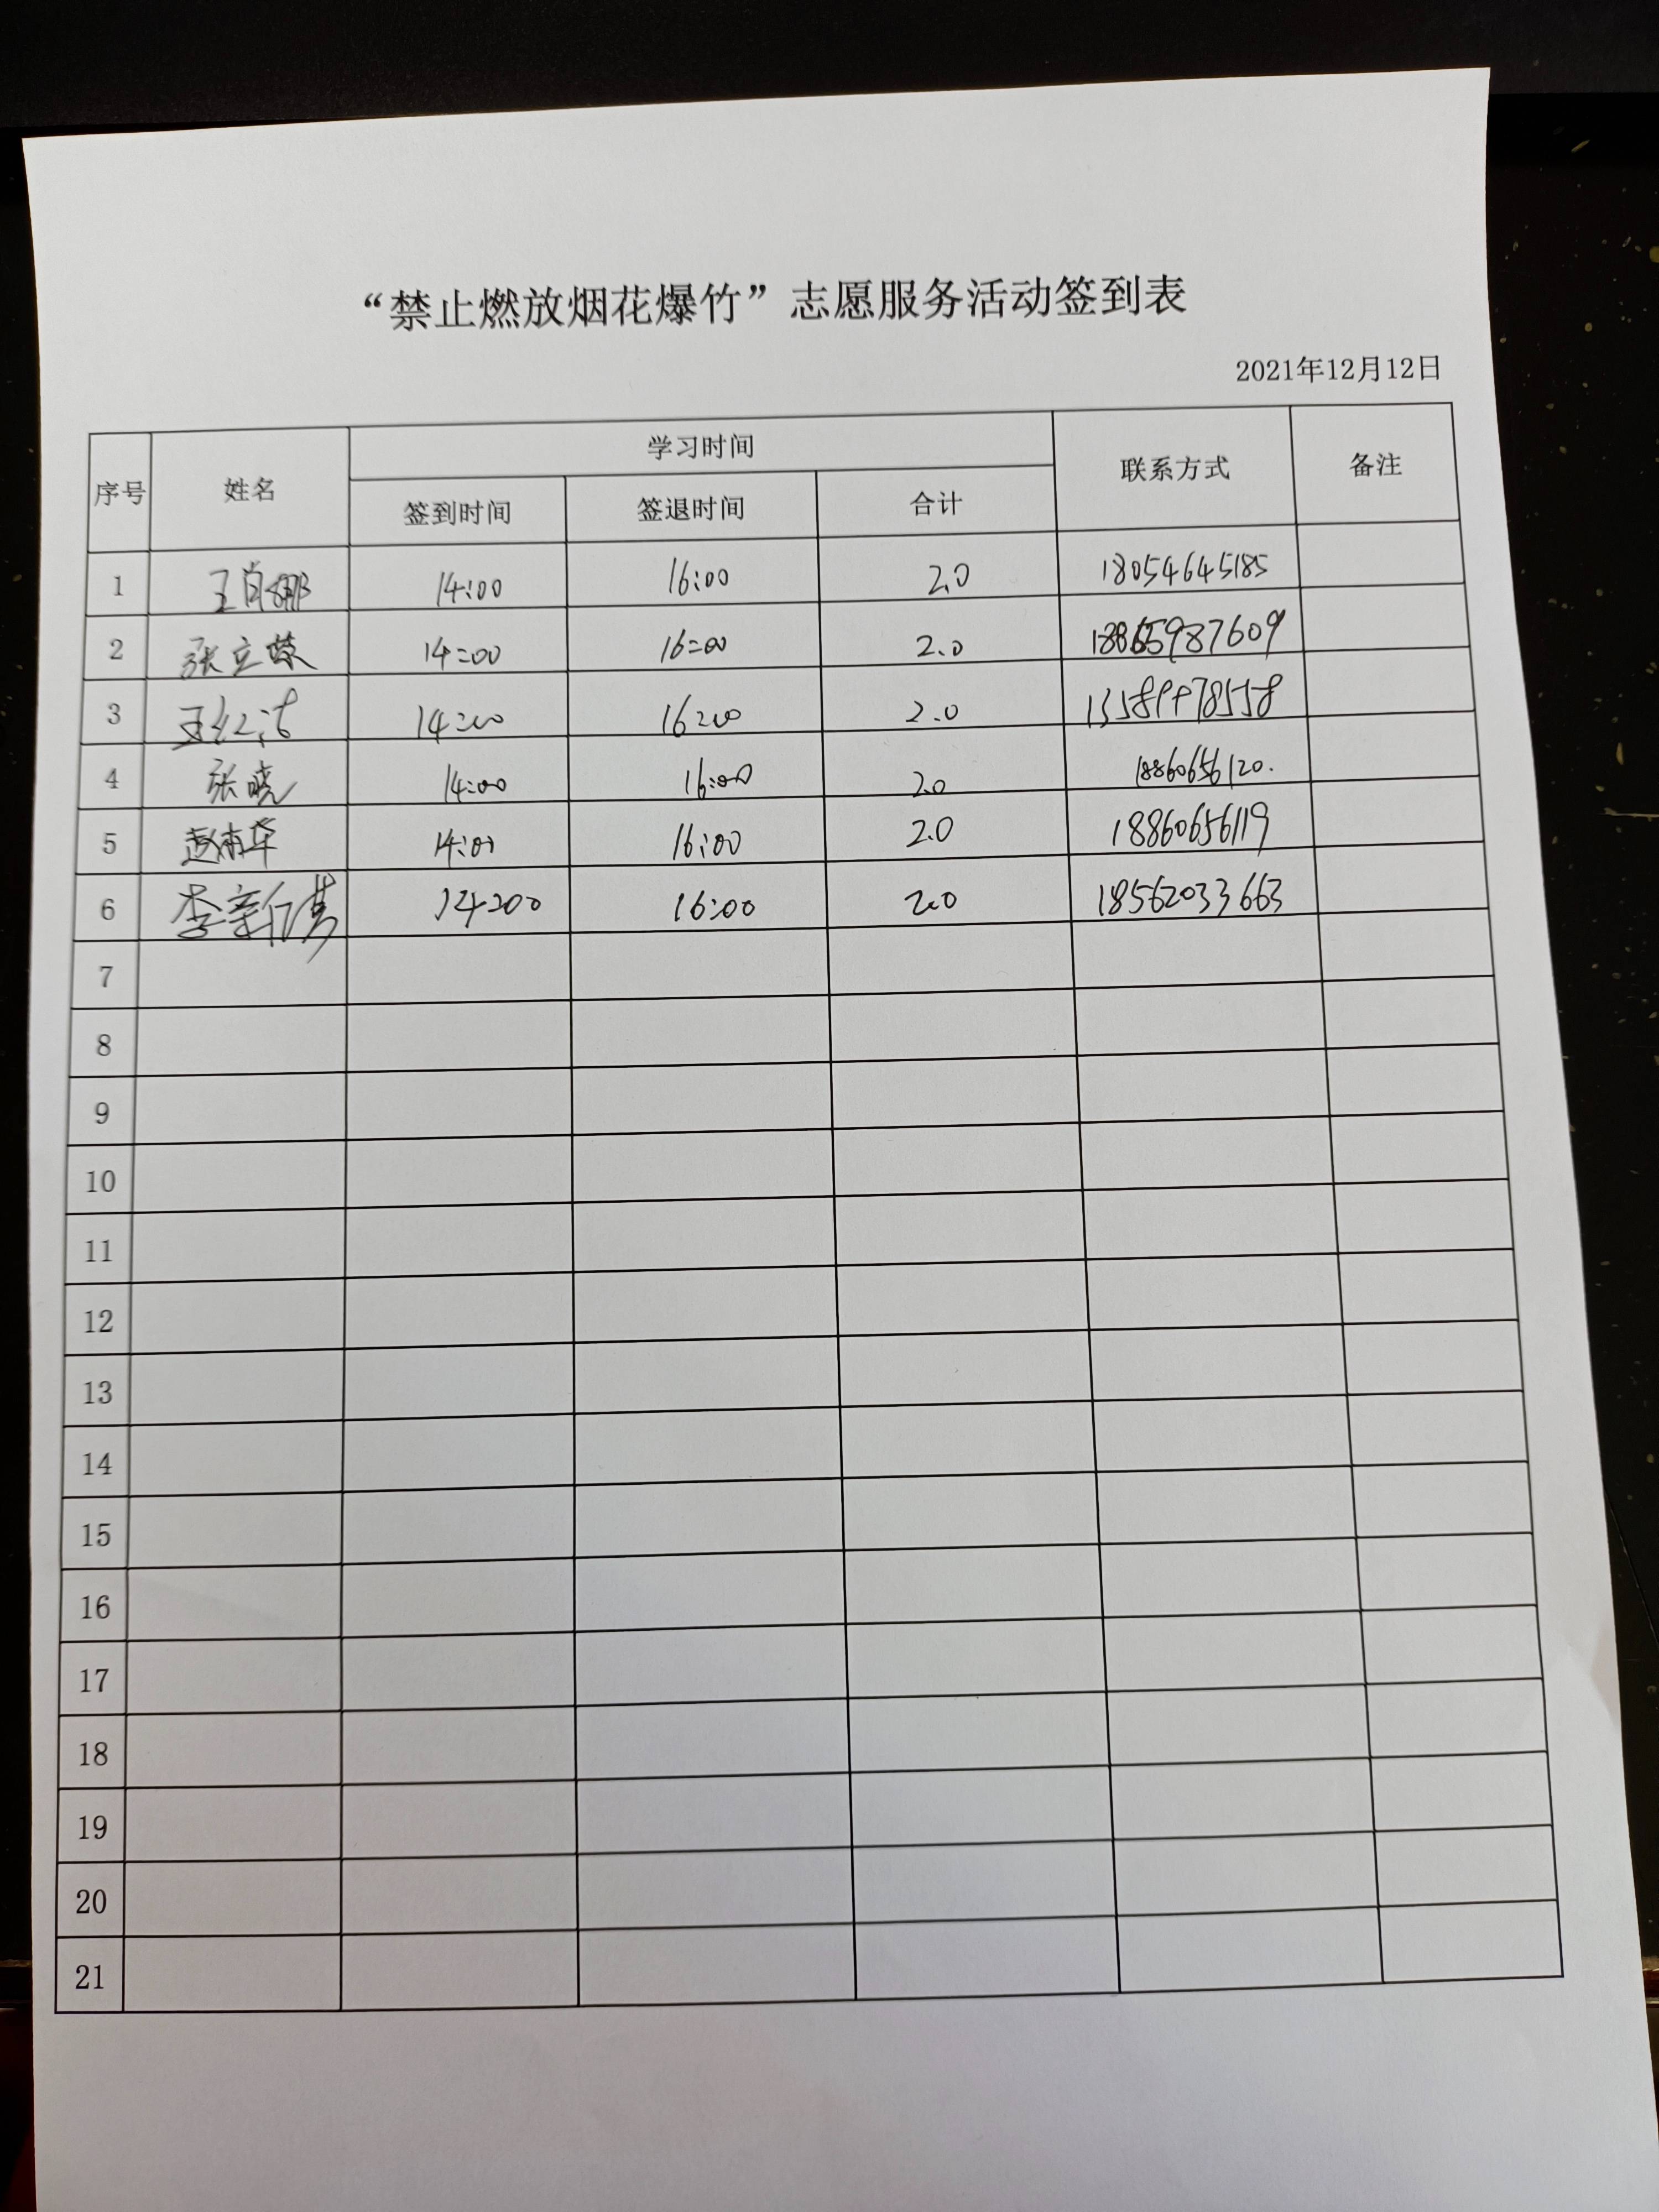 “禁止燃放烟花爆竹”志愿服务活动签到表
2021年12月12日
序号 姓名 学习时间 联系方式 备注
签到时间 签退时间 合计
1 王肖娜 14:00 16:00 2.0 18054645185
2 张立荣 14:00 16:00 2.0 18865987609
3 王红洁 14:00 16:00 2.0
4 张晓 14:00 16:00 2.0 18860656120.
5 赵南华 14:00 16:00 2.0 18860656119
6 14:00 16:00 2.0 18562033663
7
8
9
10
11
12
13
14
15
16
17
18
19
20
21